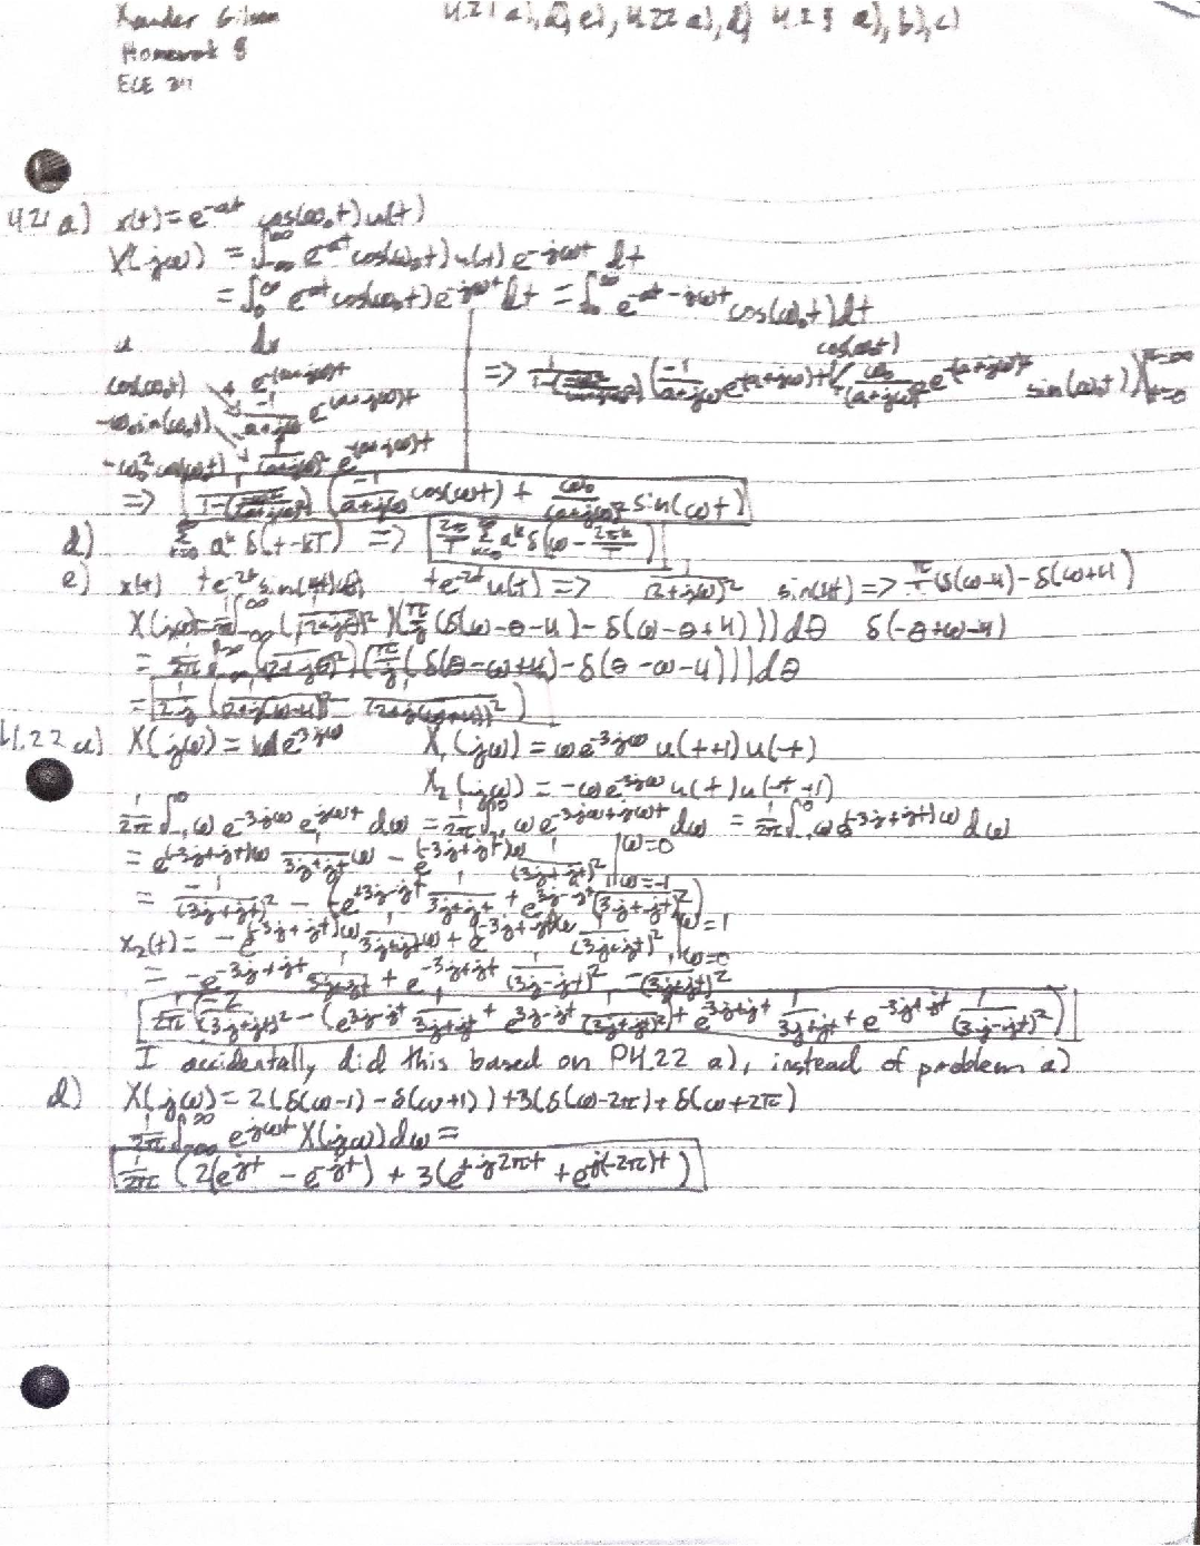 Xander Gibson 4.21 a), d), e), 4.22 a), d) 4.25 a), b), c)
Homework 8
ECE
4.21 a) x(t) = e^{-at} cos(ω₀t) u(t)
X(jω) = ∫_{-∞}^{∞} e^{-at} cos(ω₀t) u(t) e^{-jωt} dt
= ∫_0^∞ e^{-at} cos(ω₀t) e^{-jωt} dt = ∫_0^∞ e^{-at-jωt} cos(ω₀t) dt
u dv
cos(ω₀t) + e^{-(a+jω)t}
-ω₀ sin(ω₀t) - -1/(a+jω) e^{-(a+jω)t}
-ω₀² cos(ω₀t) 1/(a+jω)² e^{-(a+jω)t}
d) Σ_{k=0}^∞ a^k δ(t-kT) => 2π/T Σ_{k=0}^∞ a^k δ(ω - 2πk/T)
e) x(t) te^{-2t} sin(4t) te^{-2t} u(t) => 1/(2+jω)² sin(4t) => (δ(ω-4) - δ(ω+4))
X(jω) = 1/2π ∫_{-∞}^∞ (1/(2+jθ)²)(π/j (δ(ω-θ-4) - δ(ω-θ+4))) dθ δ(-θ+ω-4)
= 1/2π ∫_{-∞}^∞ (1/(2+jθ)²)(π/j (δ(θ-ω+4) - δ(θ-ω-4))) dθ
= 1/2j (1/(2+j(ω-4))² - 1/(2+j(ω+4))²)
4.22 a) X(jω) = e^{-3jω} X₁(jω) = ωe^{-3jω} u(t+1) u(-t)
X₂(jω) = -ωe^{-3jω} u(t) u(-t+1)
1/2π ∫_{-1}^0 ω e^{-3jω} e^{jωt} dω = 1/2π ∫_{-1}^0 ω e^{-3jω+jωt} dω = 1/2π ∫_{-1}^0 ω e^{(-3j+jt)ω} dω
= e^{(-3j+jt)ω} 1/(3j+jt) ω - e^{(-3j+jt)ω} 1/(3j+jt)² |ω=0 ω=-1
= -1/(3j+jt)² - (-e^{+3j-jt} 1/(3j+jt) + e^{3j-jt} 1/(3j+jt)²)
x₂(t) = -e^{(-3j+jt)ω} 1/(3j+jt) ω + e^{(-3j+jt)ω} 1/(3j+jt)² |ω=1 ω=0
= -e^{-3j+jt} 1/(3j+jt) + e^{-3j+jt} 1/(3j-jt)² - 1/(3j+jt)²
1/2π (-2/(3j+jt)² - (e^{3j-jt} 1/(3j+jt) + e^{3j-jt} 1/(3j+jt)²) + e^{-3j+jt} 1/(3j+jt) + e^{-3j+jt} 1/(3j-jt)²)
I accidentally did this based on P4.22 a), instead of problem a)
d) X(jω) = 2(δ(ω-1) - δ(ω+1)) + 3(δ(ω-2π) + δ(ω+2π)
1/2π ∫_{-∞}^∞ e^{jωt} X(jω) dω =
1/2π (2(e^{jt} - e^{-jt}) + 3(e^{+j2πt} + e^{j(-2π)t})